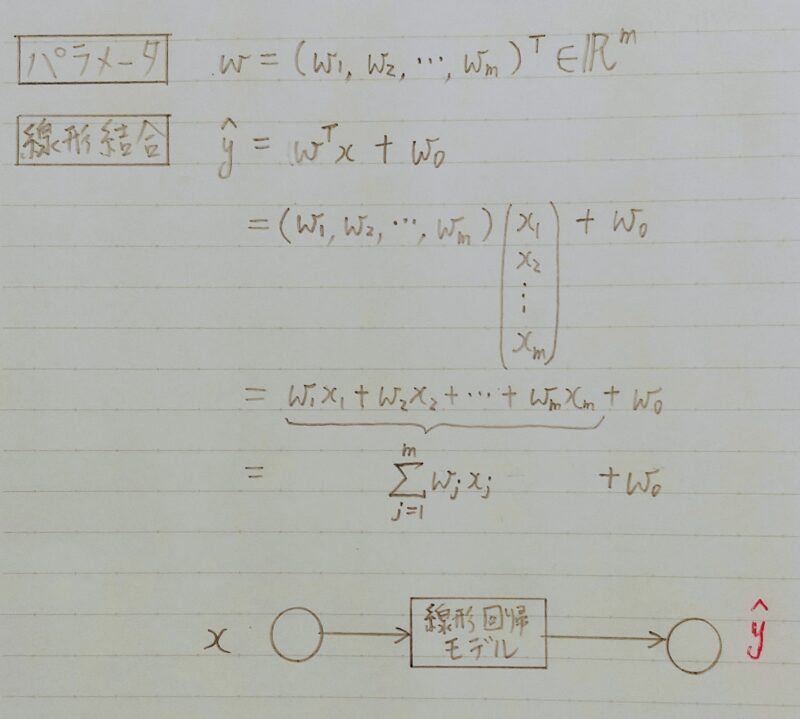 パラメータ w = (w₁, w₂, …, wₘ)ᵀ ∈ ℝᵐ
線形結合 ŷ = wᵀx + w₀
= (w₁, w₂, …, wₘ) (x₁ x₂ ⋮ xₘ) + w₀
= w₁x₁ + w₂x₂ + … + wₘxₘ + w₀
= ∑ⱼ₌₁ᵐ wⱼxⱼ + w₀
x 線形回帰 ŷ
モデル